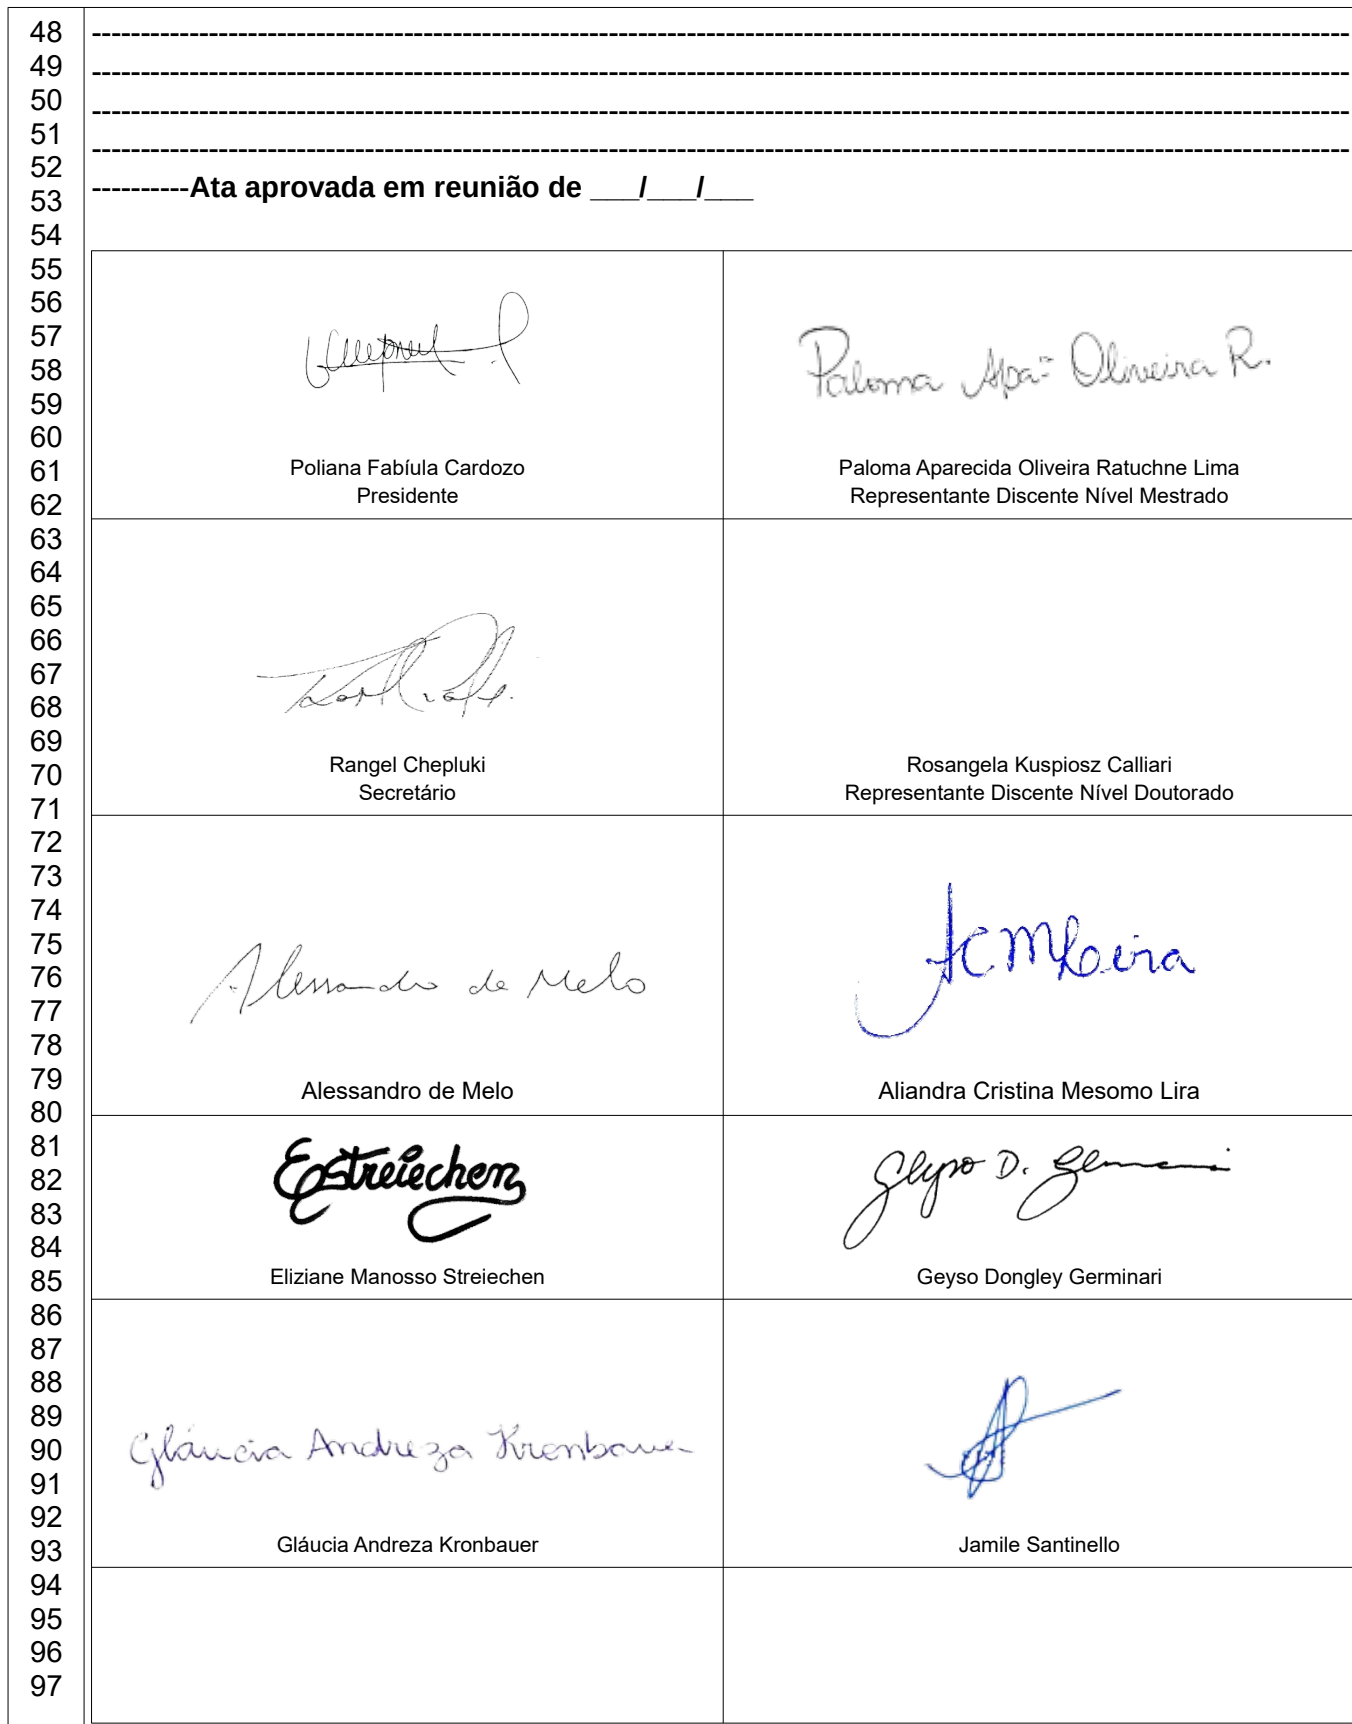 48
49
50
51
52
53
54
55
56
57
58
59
60
61
62
63
64
65
66
67
68
69
70
71
72
73
74
75
76
77
78
79
80
81
82
83
84
85
86
87
88
89
90
91
92
93
94
95
96
97
----------Ata aprovada em reunião de ___/___/___
Paloma Apa Oliveira R.
Poliana Fabíula Cardozo
Presidente
Paloma Aparecida Oliveira Ratuchne Lima
Representante Discente Nível Mestrado
Rangel Chepluki
Secretário
Rosangela Kuspiosz Calliari
Representante Discente Nível Doutorado
Alessandro de Melo
ACMLira
Alessandro de Melo
Aliandra Cristina Mesomo Lira
EStreiechen
Geyso D. Germinari
Eliziane Manosso Streiechen
Geyso Dongley Germinari
Gláucia Andreza Kronbauer
Gláucia Andreza Kronbauer
Jamile Santinello